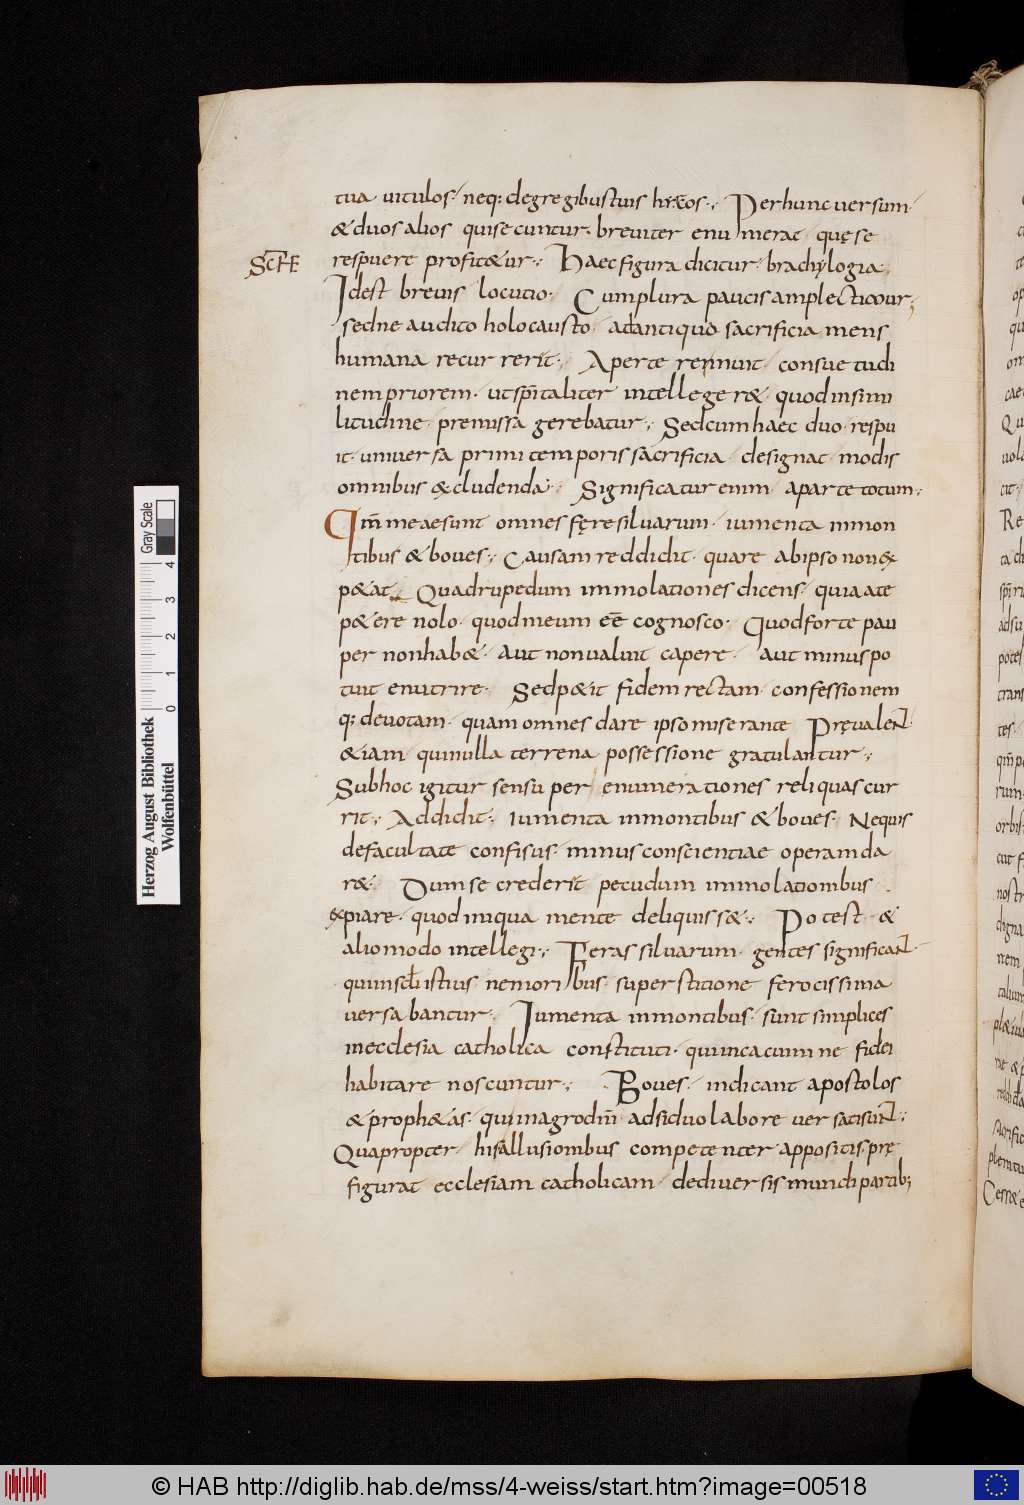 tua · uitulos · neq; degregibustuis hircos ·, Perhunc uersum ·
& duos alios quisecuntur. breuiter enumerat quęse
respuere profit&ur ·, Haecfigura dicitur · brachylogia,
Idest breuis locutio · Cumplura paucis amplectimur;
sedne audito holocausto adantiqua sacrificia mens
humana recurrerit ·, Aperte rennuit consuetudi
nem priorem · utsp̄italiter intelleger& quod insimi
litudine premissa gerebatur ·, Sedcumhaec duo respu
it · uniuersa primi temporis sacrificia designat modis
omnibus excludenda · Significatur enim aparte totum ;
Qm̄ meaesunt omnes fęre siluarum · iumenta inmon
tibus & boues ·, Causam reddidit quare abipso nonex
p&at · Quadrupedum immolationes dicens quia ate
p&ere nolo · quodmeum eē cognosco · Quodforte pau
per nonhab& · aut nonualuit capere · aut minus po
tuit enutrire · Sedp&it fidem rectam confessionem
q; deuotam · quam omnes dare ipso miserante Pręualent ·
& iam quinulla terrena possessione gratulantur ·,
Subhoc igitur sensu per enumerationes reliquas cur
rit ·, Addidit · Iumenta inmontibus & boues · Nequis
defacultate confisus · minus conscientiae operamda
r& · Dumse crederit pecudum immolationibus
expiare · quod iniqua mente deliquiss& ·, Potest &
aliomodo intellegi ·, Feras siluarum · gentes significat
quiinsaeculi istius nemoribus · superstitione ferocissima
uersabantur · Iumenta inmontibus · sunt simplices
inecclesia catholica constituti · quiincacumine fidei
habitare noscuntur ·, Boues · indicant apostolos
& proph&as · quiinagrodn̄i adsiduo labore uersatisunt ·,
Quapropter hisallusionibus competenter appositis · prę
figurat ecclesiam catholicam dediuersis mundi partib;
Herzog August Bibliothek
Wolfenbüttel
0 1 2 3 4
Gray Scale
© HAB http://diglib.hab.de/mss/4-weiss/start.htm?image=00518